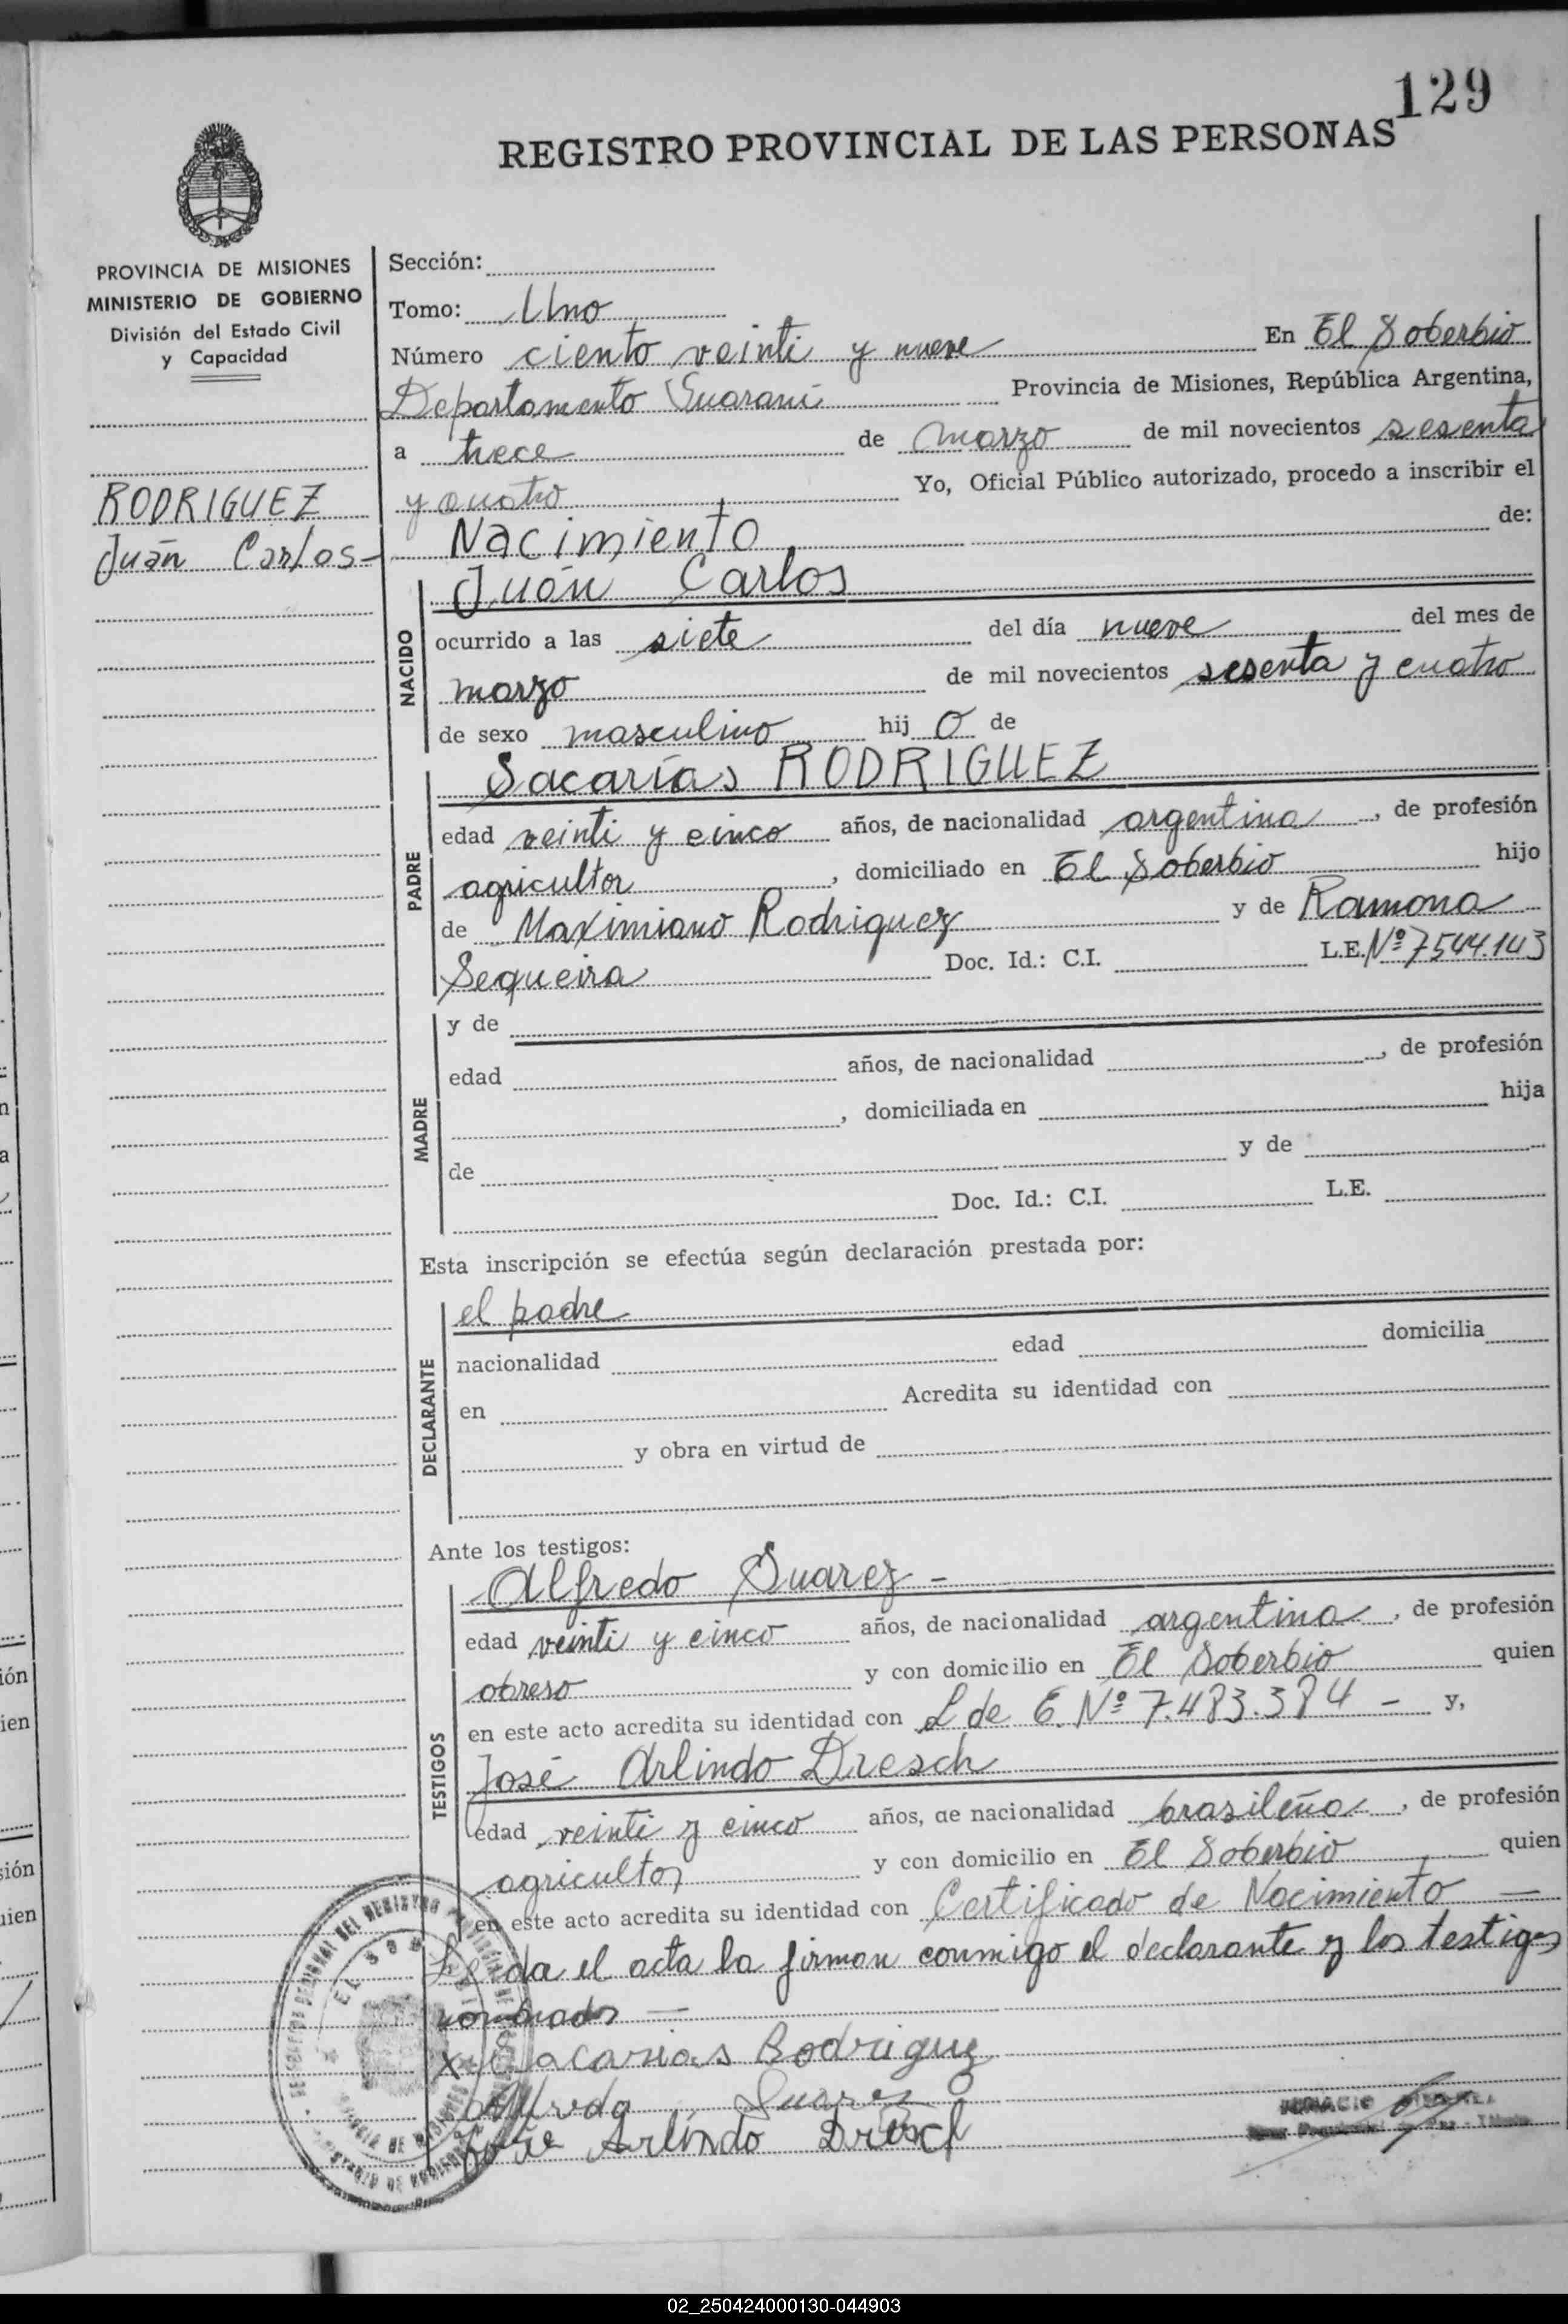 129
REGISTRO PROVINCIAL DE LAS PERSONAS
PROVINCIA DE MISIONES
MINISTERIO DE GOBIERNO
División del Estado Civil
y Capacidad
RODRIGUEZ
Juan Carlos-
Sección:
Tomo: Uno
Número ciento veinti y nueve En El Soberbio
Departamento Guaraní Provincia de Misiones, República Argentina,
a trece de marzo de mil novecientos sesenta
y cuatro Yo, Oficial Público autorizado, procedo a inscribir el
Nacimiento de:
NACIDO
Juan Carlos
ocurrido a las siete del día nueve del mes de
marzo de mil novecientos sesenta y cuatro
de sexo masculino hij o de
PADRE
Sacarías RODRIGUEZ
edad veinti y cinco años, de nacionalidad argentina, de profesión
agricultor, domiciliado en El Soberbio hijo
de Maximiano Rodriguez y de Ramona
Sequeira Doc. Id.: C.I. L.E. Nº 7544.143
MADRE
y de
edad años, de nacionalidad , de profesión
, domiciliada en hija
de y de
Doc. Id.: C.I. L.E.
Esta inscripción se efectúa según declaración prestada por:
DECLARANTE
el padre
nacionalidad edad domicilia
en Acredita su identidad con
y obra en virtud de
Ante los testigos:
TESTIGOS
Alfredo Suarez -
edad veinti y cinco años, de nacionalidad argentina, de profesión
obreso y con domicilio en El Soberbio quien
en este acto acredita su identidad con L de E. Nº 7.483.384 - y,
José Arlindo Dresch
edad veinti y cinco años, de nacionalidad brasileña, de profesión
agricultor y con domicilio en El Soberbio quien
en este acto acredita su identidad con Certificado de Nacimiento —
Leida el acta la firman conmigo el declarante y los testigos
nombrados —
x Sacarias Rodriguz
Alfredo Suarez
José Arlindo Dresch
02_250424000130-044903